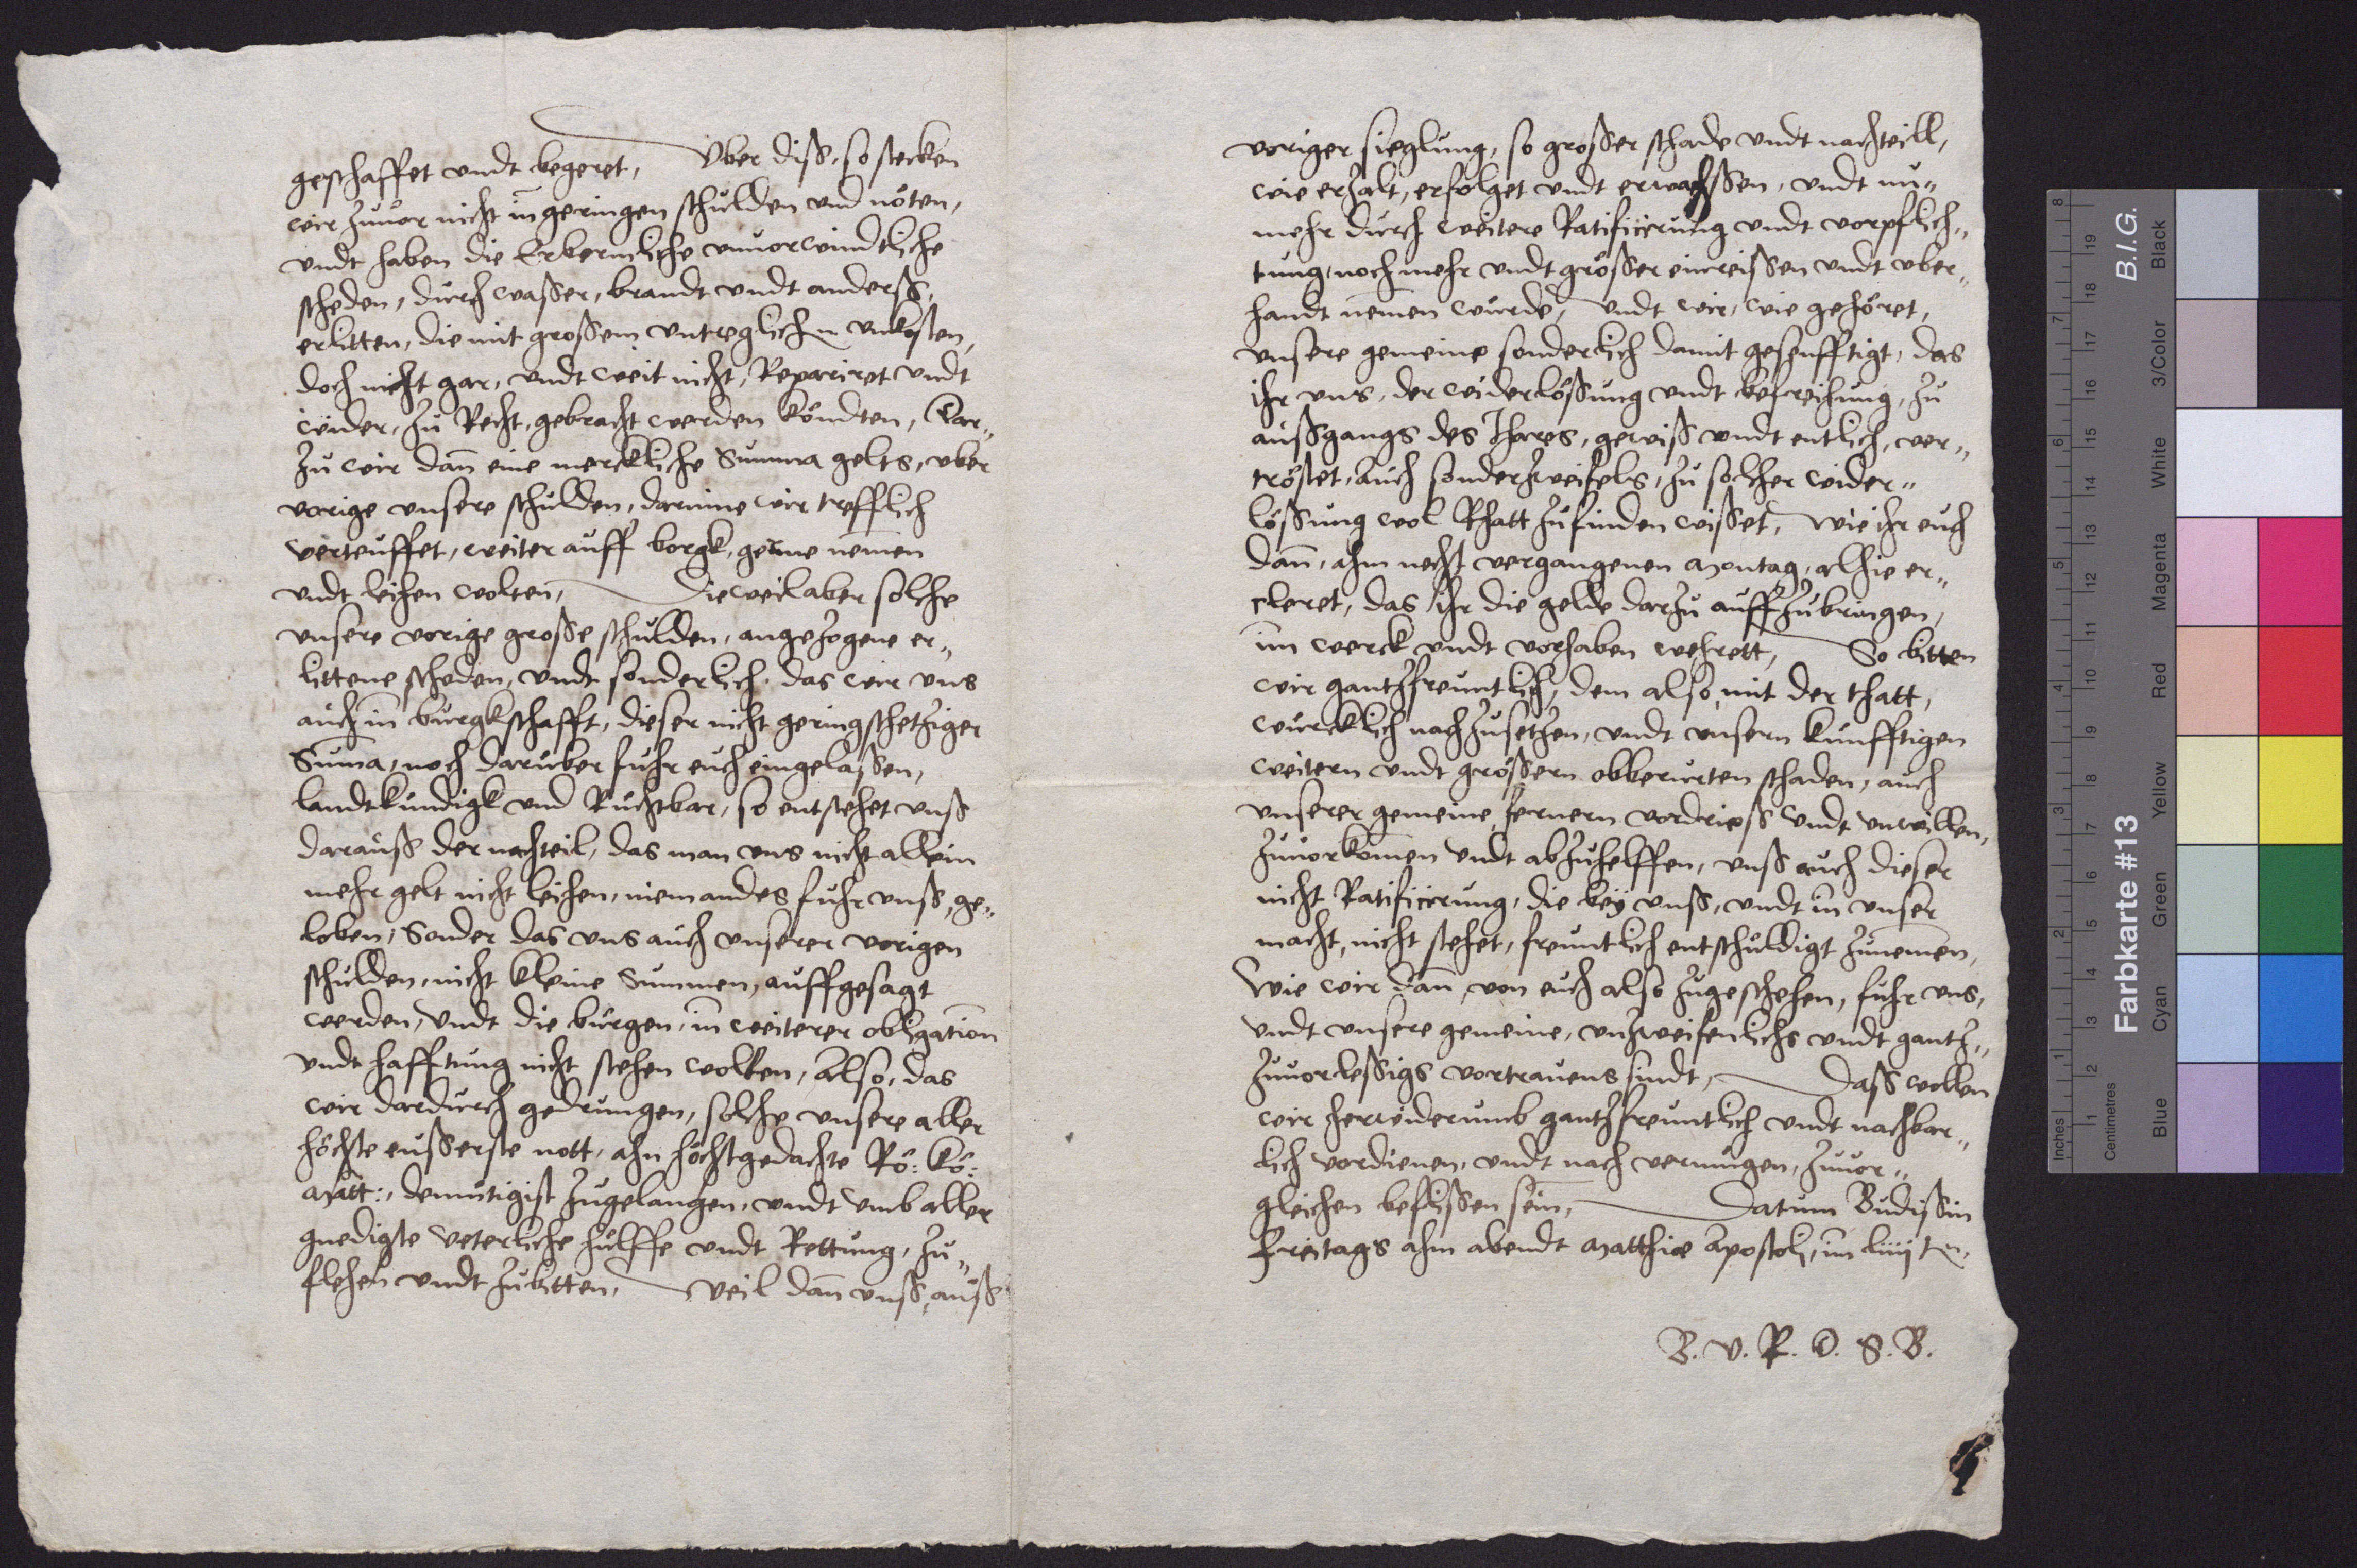 geschaffet vndt begeret, Vber diss, so stecken
wir zuuor nicht in geringen schulden vnd nöten,
vndt haben die Erbermliche vnuorwindtliche
scheden, durch wasser, brandt vndt anderss,
erlitten, die mit grossem vntreglichen vnkosten,
doch nicht gar, vndt weit nicht, Repariret vndt
wider, zu Recht, gebracht werden köndten, Dar„
zu wir dan̄ eine merckliche Summa gelts, vber
vorige vnsere schulden, darinne wir trefflich
verteuffet, weiter auff borgk, gerne nemen
vndt leihen wolten, Die weil aber solche
vnsere vorige grosse schulden, angezogene er„
littene scheden, vndt sonderlich, das wir vns
auch in burgkschafft, dieser nicht geringschetziger
Sum̄a, noch daruber fuhr euch eingelassen,
landtkundigk vnd Ruchtbar, so entstehet vnss
darauss der nachteil, das man vns nicht allein
mehr gelt nicht leihen, niemandes fuhr vnss, ge„
loben, Sonder das vns auch vnserer vorigen
schulden, nicht kleine Summen, auffgesagt
werden, vndt die bürgen, in weiterer obligation
vndt hafftung nicht stehen wolten, Also, das
wir dardurch gedrungen, solche vnsere aller
höchste eusserste nott, ahn höchstgedachte Rö: Kö:
Matt:, demutigist zugelangen, vndt vmb aller
gnedigste veterliche hülffe vndt Rettung, zu„
flehen vndt zubitten, Weil dan̄ vnss, auss
voriger sieglung, so grosser schade vndt nachteill,
wie erzalt, erfolget vndt erwachssen, vndt nu„
mehr durch weitere Ratificirung vndt vorpflich„
tung, noch mehr vndt grösser einreissen vndt vber„
handt nemen würde, vndt wir, wie gehöret,
vnsere gemeine sonderlich damit gesenfftigt, das
ihr vns, der widerlössung vndt befreihung, zu
aussgangs des Jhares, gewiss vndt entlich, ver„
tröstet, auch sonder zweifels, zu solcher wider„
lössung wol Rhatt zufinden wisset, Wie ihr euch
dan̄, ahm nechst vergangenen Montag, alhie er„
cleret, das ihr die gelde darzu auffzubringen,
im werck vndt vorhaben wehrett, So bitten
wir gantz freuntlich, dem also, mit der thatt,
würcklich nachzusetzen, vndt vnsern kunfftigen
weitern vndt grössern obberurten schaden, auch
vnserer gemeine, fernern vordriess vndt vnwillen,
zuuorkomen vndt abzuhelffen, vnss auch dieser
nicht Ratificirung, die bey vnss, vndt in vnser
macht, nicht stehet, freuntlich entschuldigt zunemen,
Wie wir dan̄, von euch also zugeschehen, fuhr vns,
vndt vnsere gemeine, vnzweifenlichs vndt gantz„
zuuorlessigs vortrauens sindt, Dass wollen
wir herwiderumb gantz freuntlich vndt nachbar„
lich vordienen, vndt nach vermugen, zuuor„
gleichen beflissen sein, Datum Budissin
Freitags ahm abendt Matthiæ Apostoli, im liiij ten
B. V. R. D. S. B.